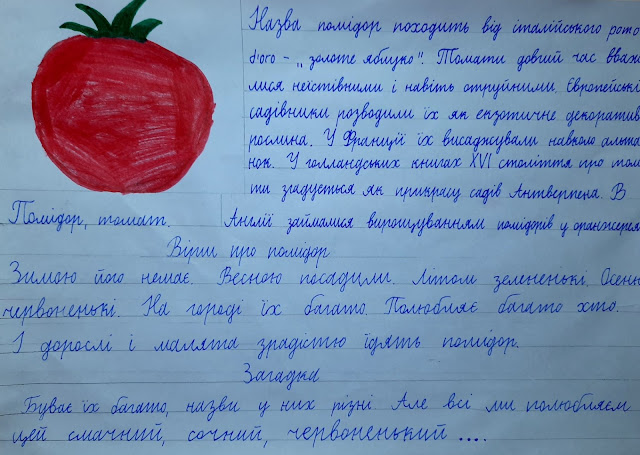 Назва помідор походить від італійського pomo
d'oro - „золоте яблуко". Томати довгий час вваж
лися неїстівними і навіть отруйними. Європейські
садівники розводили їх як екзотичне декоратив
рослина. У Франції їх висаджували навколо альта
нок. У голландських книгах XVI століття про том
ти згадується як прикрасу садів Антверпена. В
Англії займалися вирощуванням помідорів у оранжерея
Помідор, томат.
Вірш про помідор
Зимою його немає. Весною посадили. Літом зелененькі. Осені
червоненькі. На городі їх багато. Полюбляє багато хто.
І дорослі і малята зрадістю їдять помідор.
Загадка
Буває їх багато, назви у них різні. Але всі ми полюбляєм
цей смачний, сочний, червоненький ....